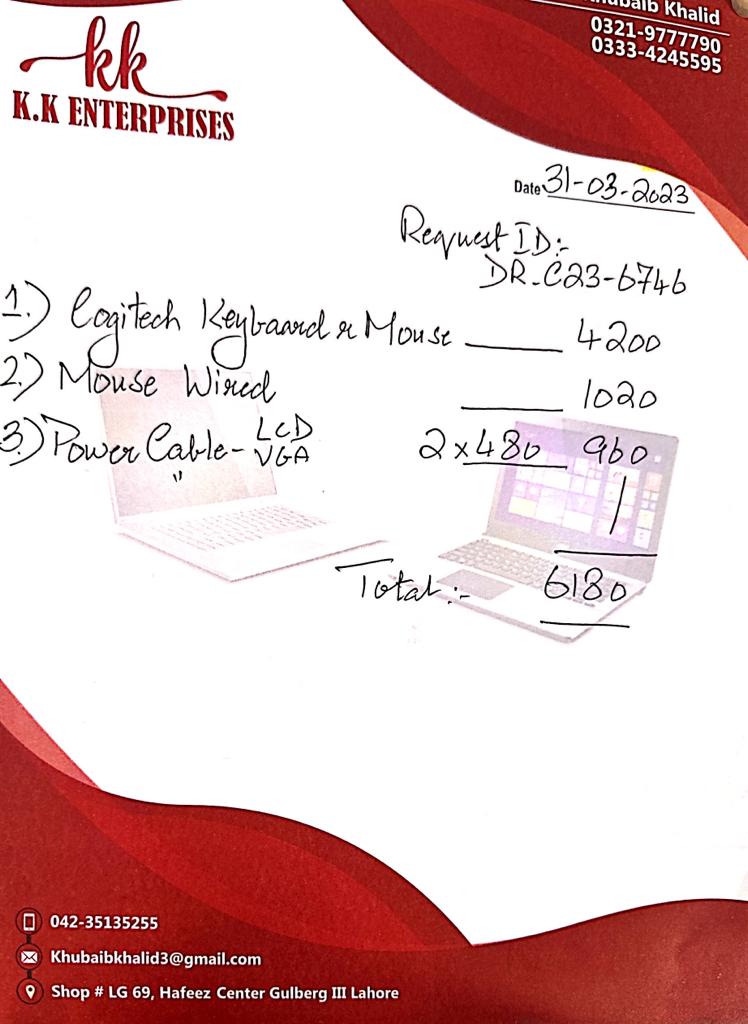 Khubaib Khalid
0321-9777790
0333-4245595
kk
K.K ENTERPRISES
Date 31-03-2023
Request ID:-
DR-C23-6746
1.) Logitech Keybaard & Mouse ____ 4200
2.) Mouse Wired ____ 1020
3.) Power Cable - LCD 2 x 480 960
" VGA
Total:- 6180
042-35135255
Khubaibkhalid3@gmail.com
Shop # LG 69, Hafeez Center Gulberg III Lahore